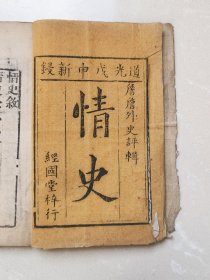 道光戊申新鐫
詹詹外史評輯
情史
經國堂梓行
情史敘